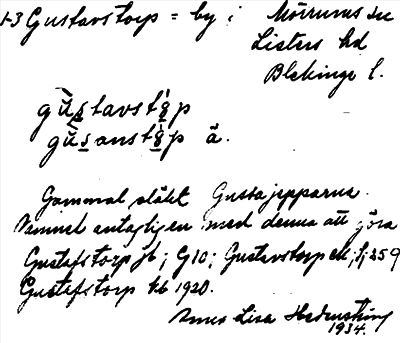 1-3 Gustavstorp = by i Mörrums sn
Listers hd
Blekinge l.
gùstavstò̜p
gùsanstò̜p ä.
Gammal släkt Gussajepparna.
Namnet antagligen med denna att göra
Gustafstorp jb; G10; Gustavstorp ek; Sj 259
Gustafstorp kb 1920.
Anna Lisa
1934.